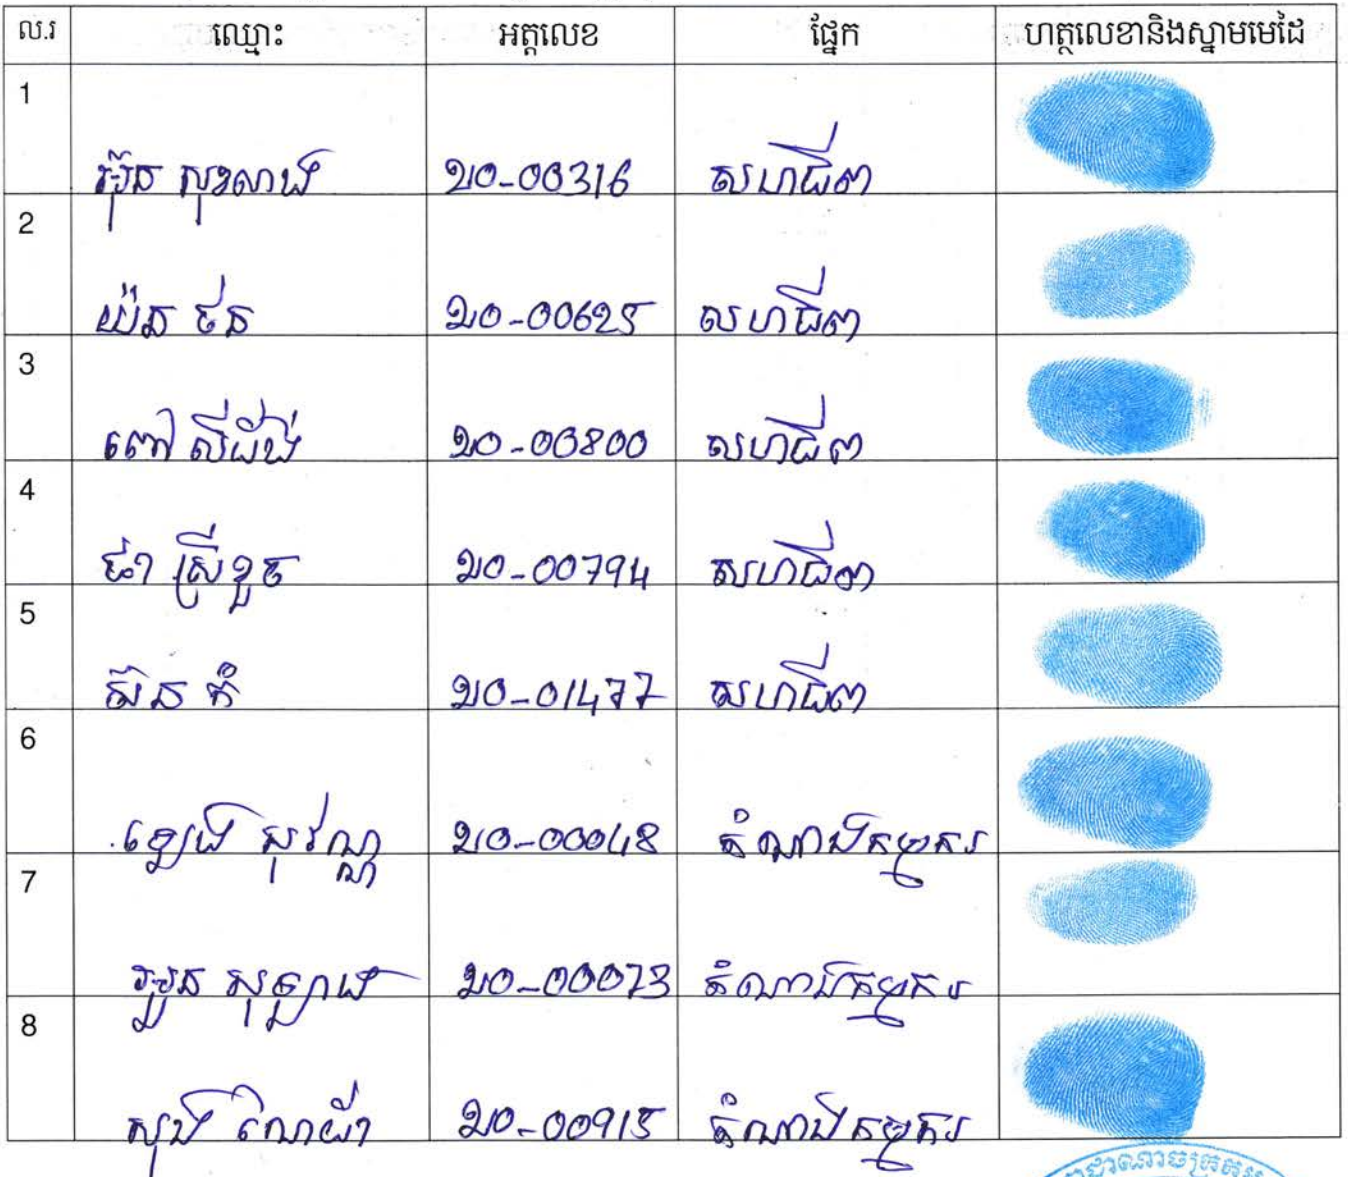 ល.រ ឈ្មោះ អត្តលេខ ផ្នែក ហត្ថលេខានិងស្នាមមេដៃ
1 អ៊ុន សុខលាង ២០-00316 សហជីព
2 យ៉ន ថន ២០-00625 សហជីព
3 ពៅ ស៊ីដាំង ២០-00800 សហជីព
4 ជា ស្រីខួច ២០-00794 សហជីព
5 ស៊ន កំ ២០-01477 សហជីព
6 ឡេង សុវណ្ណ ២០-00048 តំណាងកម្មករ
7 អួន សុឡាង ២០-00073 តំណាងកម្មករ
8 សុង ណៃយ៉ា ២០-00915 តំណាងកម្មករ